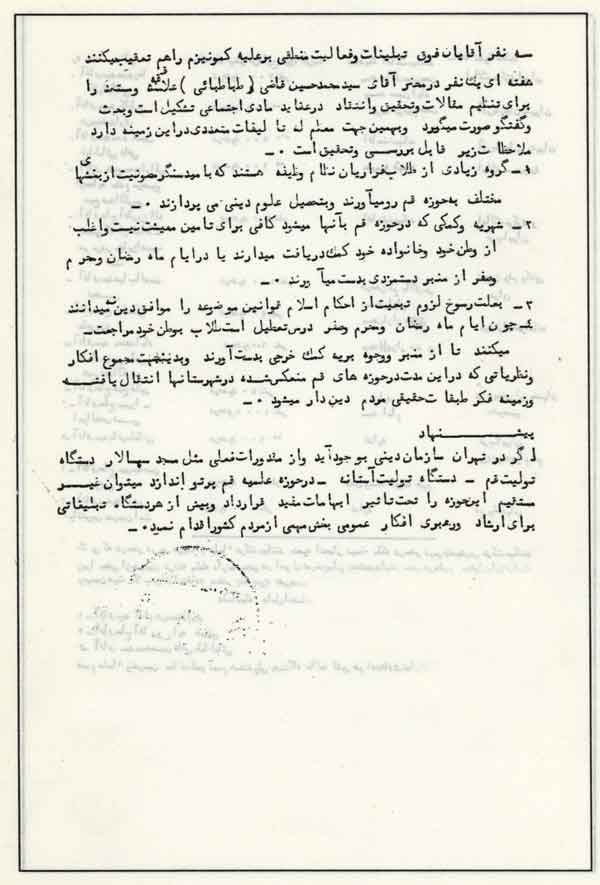 سه نفر آقایان فوق تبلیغات وفعالیت منطقی برعلیه کمونیزم راهم تعقیب میکنند
هفته ای یک نفر درمحضر آقای سید محمدحسین قاضی ( طباطبائی ) را
برای تنظیم مقالات وتحقیق وانتقاد درعقاید مادی اجتماعی تشکیل است وبحث
وگفتگو صورت میگیرد وبهمین جهت معظم له تالیفات متعددی دراین زمینه دارد
ملاحظات زیر قابل بررسی وتحقیق است ۰ ـ
۱ـ گروه زیادی از طلاب فراریان نظام وظیفه هستند که با مید سنگر مصونیت از بخشهای
مختلف به حوزه قم رومیآورند وبتحصیل علوم دینی می پردازند ۰ ـ
۲ـ شهریه وکمکی که درحوزه قم بآنها میشود کافی برای تامین معیشت نیست واغلب
از وطن خود وخانواده خود کمک دریافت میدارند یا درایام ماه رمضان ومحرم
وصفر از منبر دستمزدی بدست میآورند ۰ ـ
۳ـ بعلت رسوخ لزوم تبعیت از احکام اسلام قوانین موضوعه را موافق دین نمیدانند
۴ـ چون ایام ماه رمضان ومحرم وصفر درس تعطیل است طلاب بوطن خود مراجعت ـ
میکنند تا از منبر ووجوه بریه کمک خرجی بدست آورند وبدینجهت مجموع افکار
ونظریاتی که دراین مدت درحوزه های قم منعکس شده درشهرستانها انتقال یافتـــه
وزمینه فکر طبقات حقیقی مردم دین دار میشود ۰ ـ
پیشـــــنهاد
اگر در تهران سازمان دینی بوجود آید واز مقدورات فعلی مثل مسجد سپهسالار دستگاه
تولیت قم ـ دستگاه تولیت آستانه ـ درحوزه علمیه قم پرتو اندازد میتوان غیـــر
مستقیم این حوزه را تحت تاثیر مفید قرارداد وبیش از هردستگاه تبلیغاتی
برای ارشاد ورهبری افکار عمومی بخش مهمی از مردم کشور اقدام نمود ۰ ـ